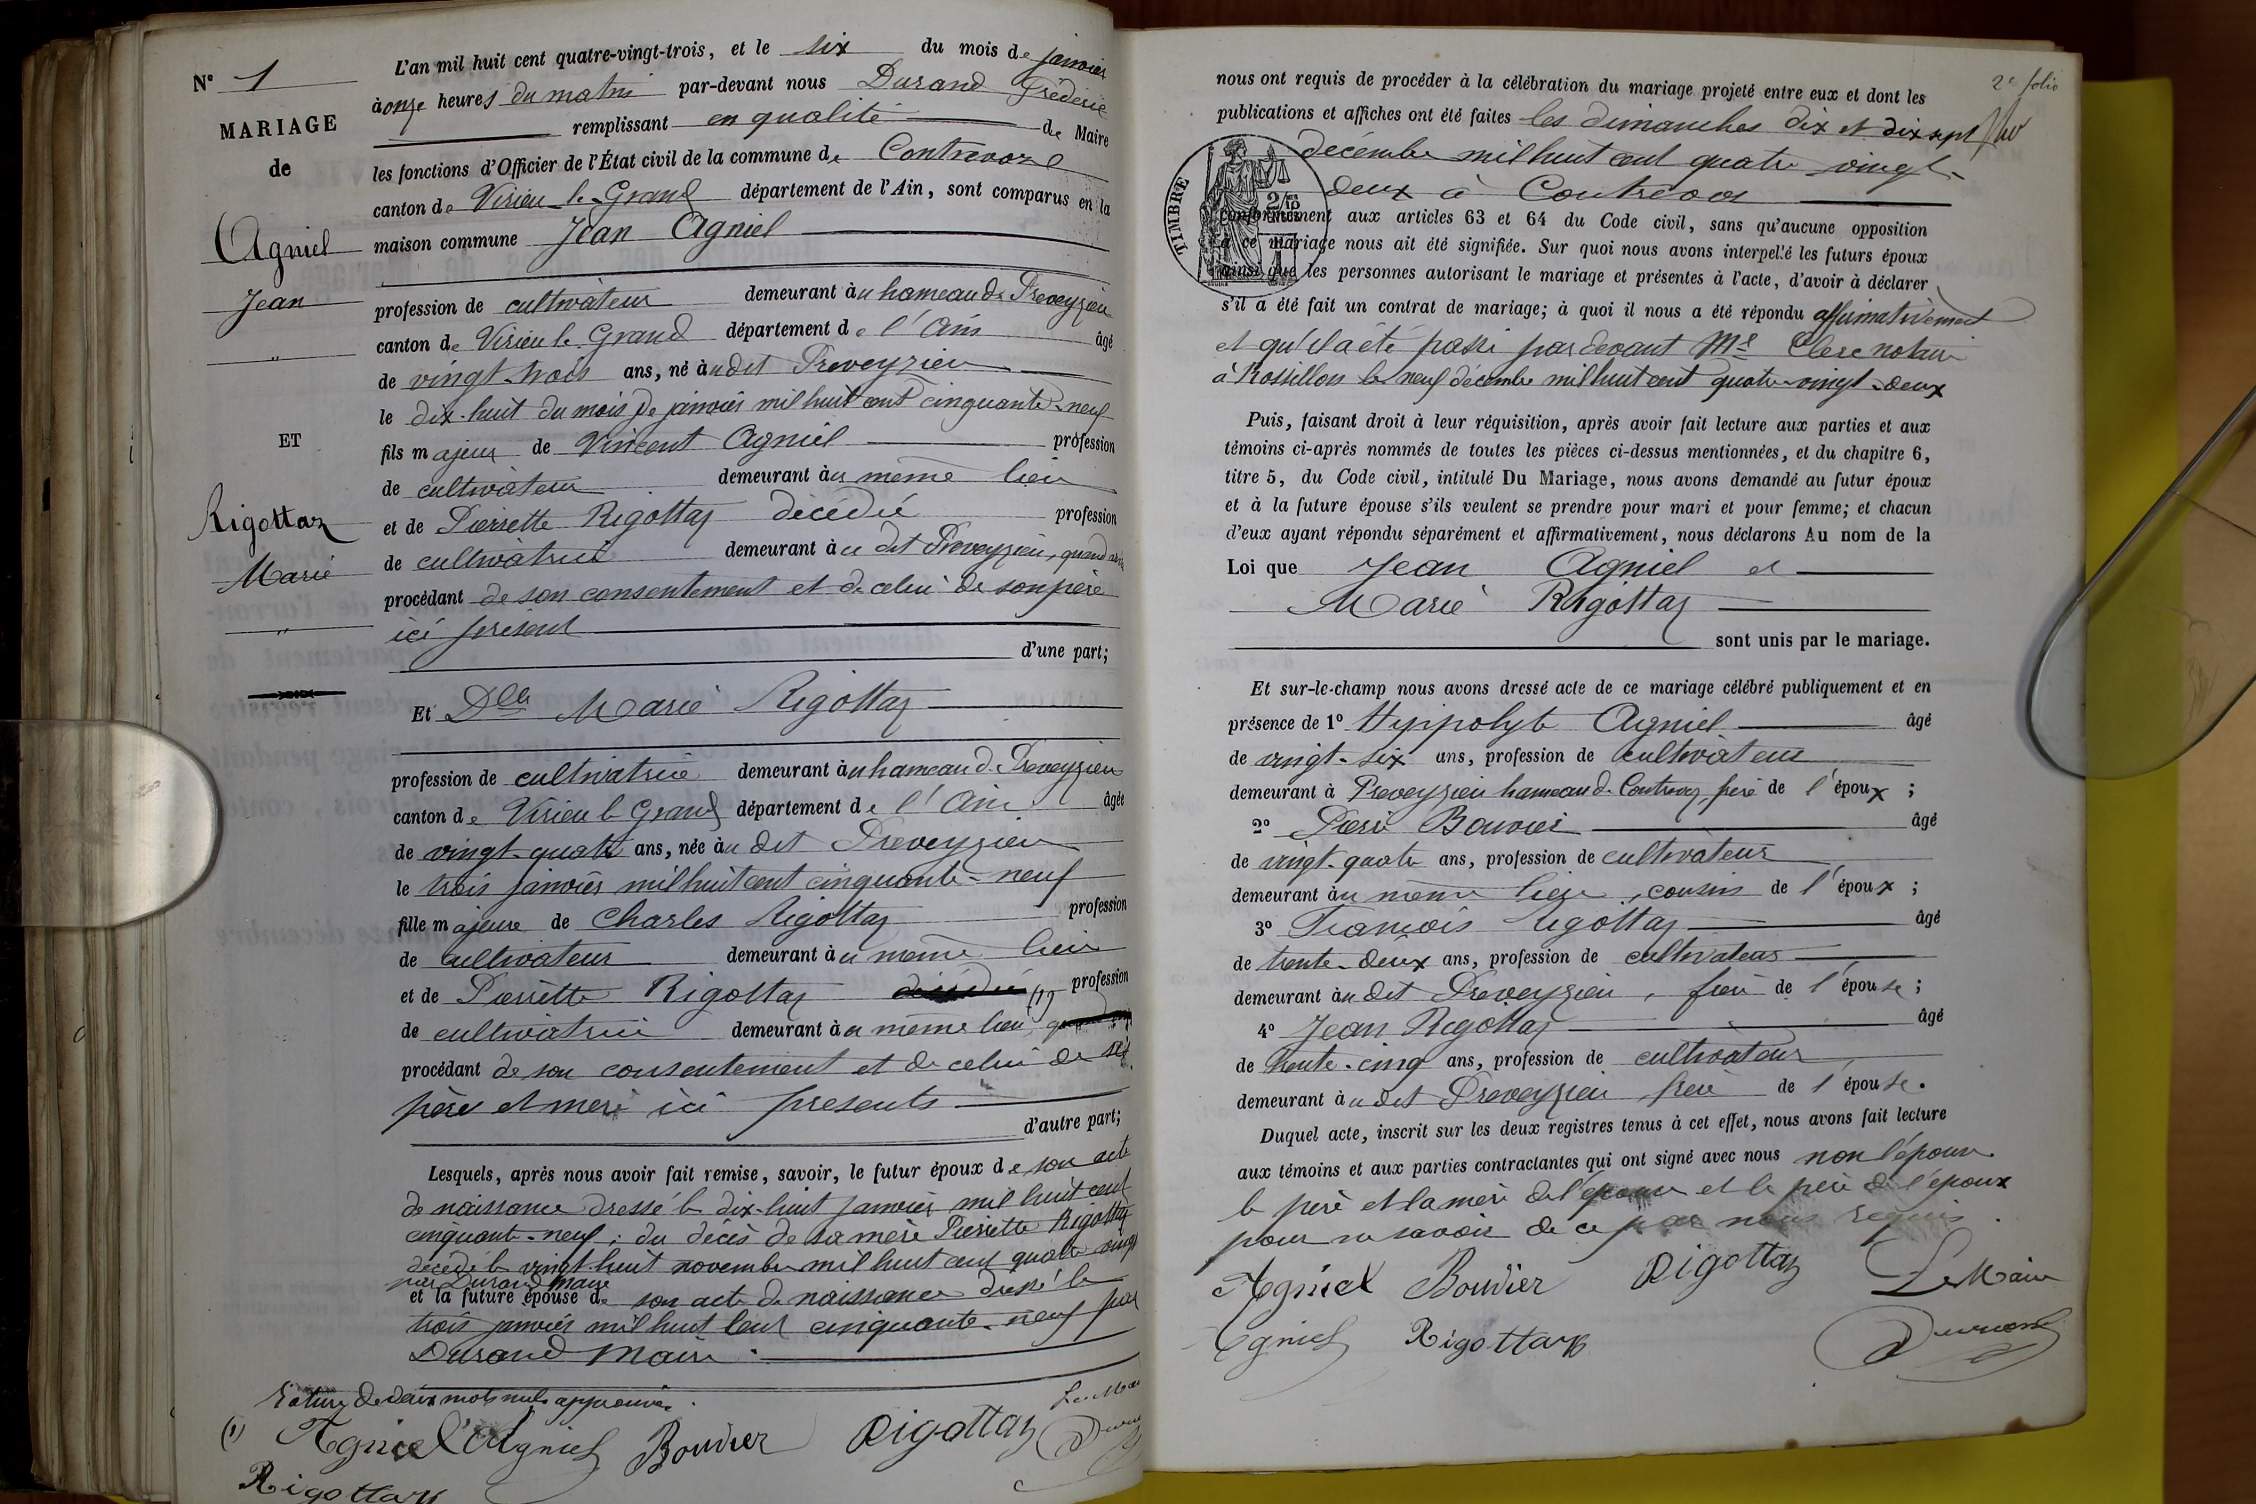 N° 1
MARIAGE
de
Agniel
Jean
"
ET
Rigottaz
Marie
"
L'an mil huit cent quatre-vingt-trois, et le six du mois de janvier
à onze heures du matin par-devant nous Durand Fréderic
remplissant en qualité de Maire
les fonctions d'Officier de l'État civil de la commune de Contrevoz
canton de Virieu-le-Grand département de l'Ain, sont comparus en la
maison commune Jean Agniel
profession de cultivateur demeurant au hameau de Preveyzieu
canton de Virieu le Grand département de l'Ain âgé
de vingt-trois ans, né au dit Preveyzieu
le dix-huit du mois de janvier mil huit cent cinquante-neuf
fils majeur de Vincent Agniel profession
de cultivateur demeurant au même lieu
et de Pierrette Rigottaz décédée profession
de cultivatrice demeurant au dit Preveyzieu, quand
procédant de son consentement et de celui de son père
ici présent
d'une part;
Et Dlle Marie Rigottaz
profession de cultivatrice demeurant au hameau de Preveyzieu
canton de Virieu le Grand département de l'Ain âgée
de vingt-quatre ans, née au dit Preveyzieu
le trois janvier mil huit cent cinquante-neuf
fille majeure de Charles Rigottaz profession
de cultivateur demeurant au même lieu
et de Pierrette Rigottaz décédée (1) profession
de cultivatrice demeurant au même lieu,
procédant de son consentement et de celui de ses
père et mère ici présents
d'autre part;
Lesquels, après nous avoir fait remise, savoir, le futur époux de son acte
de naissance dressé le dix-huit janvier mil huit cent
cinquante-neuf; du décès de sa mère Pierrette Rigottaz
décédé le vingt-huit novembre mil huit cent quatre vingt
par Durand Maire
et la future épouse de son acte de naissance dressé le
trois janvier mil huit cent cinquante-neuf par
Durand Maire.
Rature de deux mots nuls approuvée.
(1) Agniel Agniel Bouvier Rigottaz Le Maire
Rigottaz
2e folio
nous ont requis de procéder à la célébration du mariage projeté entre eux et dont les
publications et affiches ont été faites les dimanches dix et dix sept
décembre mil huit cent quatre vingt-
deux à Contrevoz
TIMBRE
conformément aux articles 63 et 64 du Code civil, sans qu'aucune opposition
à ce mariage nous ait été signifiée. Sur quoi nous avons interpellé les futurs époux
ainsi que les personnes autorisant le mariage et présentes à l'acte, d'avoir à déclarer
s'il a été fait un contrat de mariage; à quoi il nous a été répondu affirmativement
et qu'il a été passé par devant Me Clerc notaire
à Rossillon le neuf décembre mil huit cent quatre-vingt-deux
Puis, faisant droit à leur réquisition, après avoir fait lecture aux parties et aux
témoins ci-après nommés de toutes les pièces ci-dessus mentionnées, et du chapitre 6,
titre 5, du Code civil, intitulé Du Mariage, nous avons demandé au futur époux
et à la future épouse s'ils veulent se prendre pour mari et pour femme; et chacun
d'eux ayant répondu séparément et affirmativement, nous déclarons Au nom de la
Loi que Jean Agniel et
Marie Rigottaz
sont unis par le mariage.
Et sur-le-champ nous avons dressé acte de ce mariage célébré publiquement et en
présence de 1° Hyppolyte Agniel âgé
de vingt-six ans, profession de cultivateur
demeurant à Preveyzieu hameau de Contrevoz, frère de l'époux ;
2° Pierre Bouvier âgé
de vingt-quatre ans, profession de cultivateur
demeurant au même lieu, cousin de l'époux ;
3° François Rigottaz âgé
de trente-deux ans, profession de cultivateur
demeurant au dit Preveyzieu, frère de l'épouse ;
4° Jean Rigottaz âgé
de trente-cinq ans, profession de cultivateur
demeurant au dit Preveyzieu frère de l'épouse.
Duquel acte, inscrit sur les deux registres tenus à cet effet, nous avons fait lecture
aux témoins et aux parties contractantes qui ont signé avec nous non l'épouse
le père et la mère de l'épouse et le père de l'époux
pour ne savoir de ce par nous requis.
Agniel Bouvier Rigottaz Le Maire
Agniel Rigottaz Durand